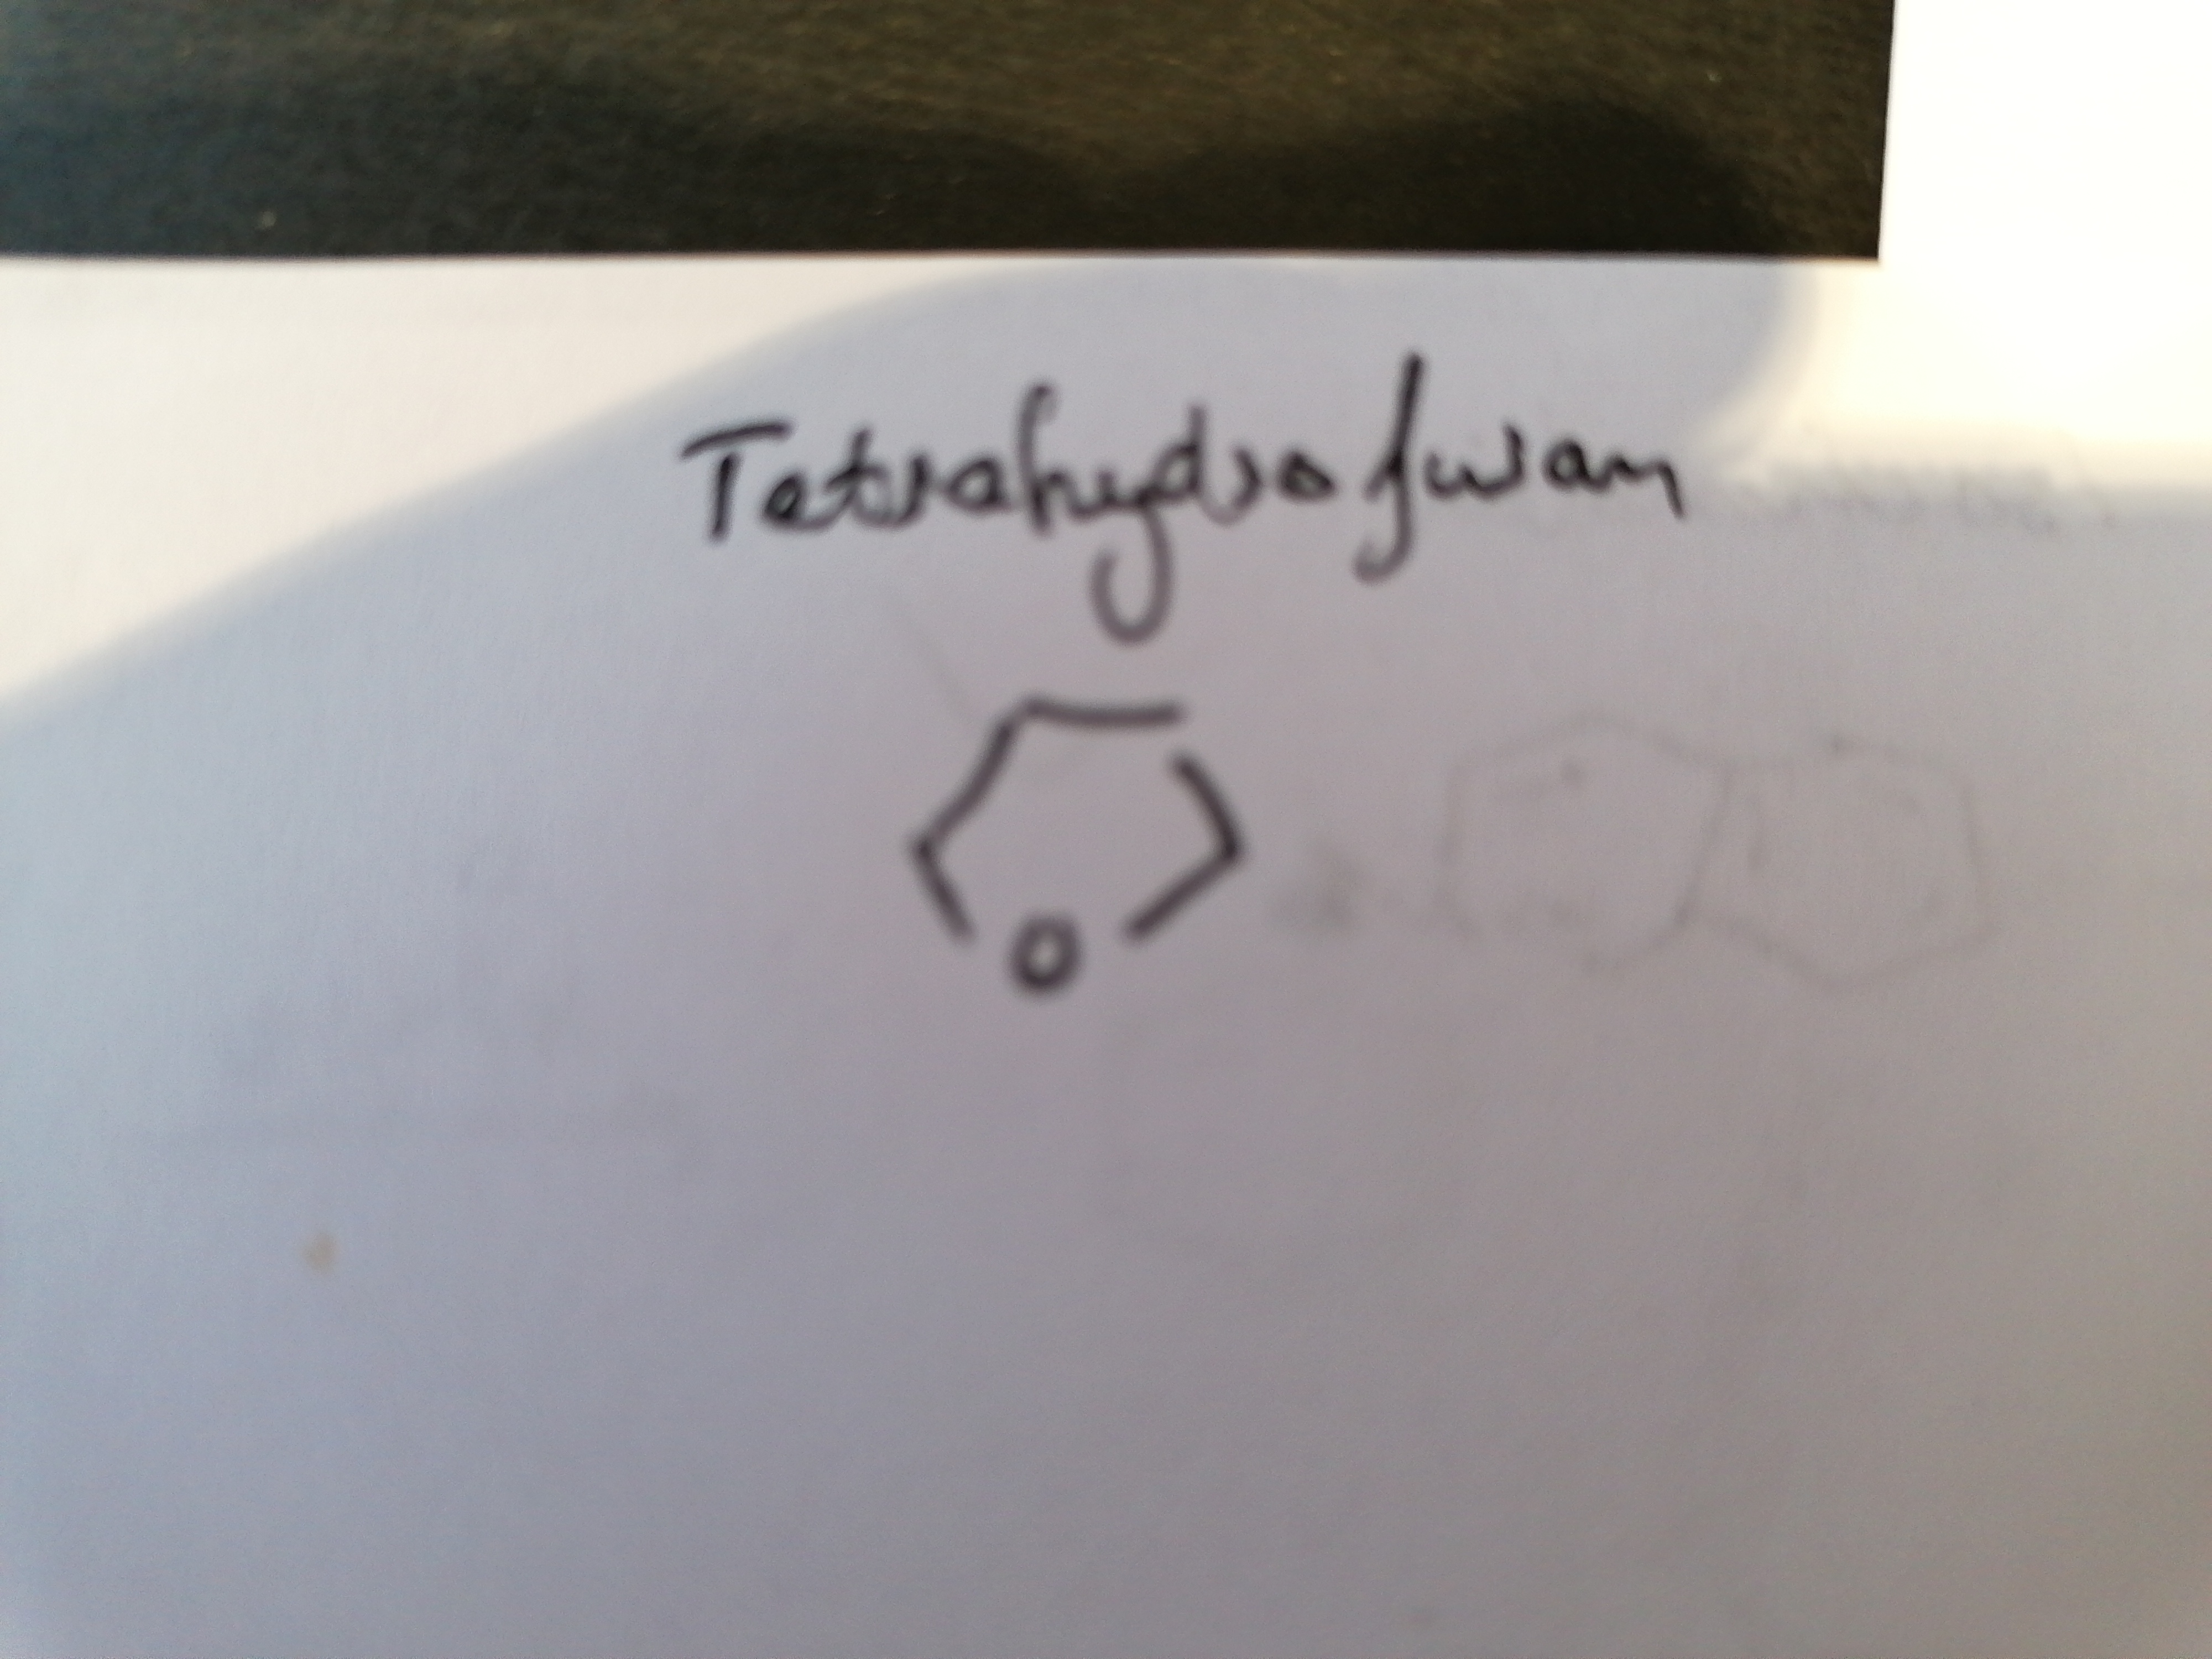 Tetrahydrofuran
O